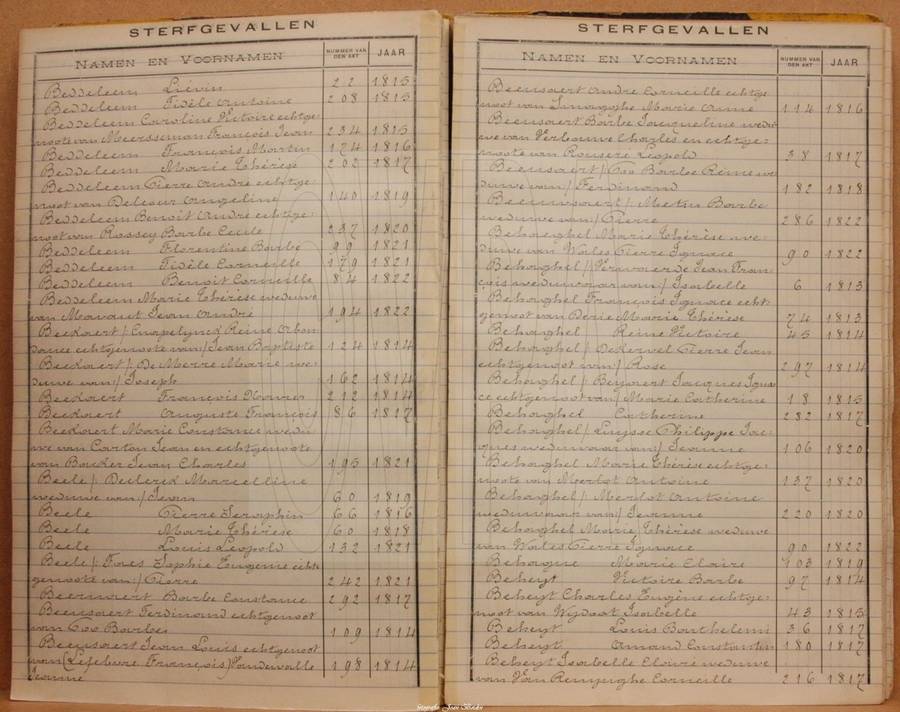 STERFGEVALLEN
NAMEN EN VOORNAMEN NUMMER VAN DEN AKT JAAR
Beddeleem Liévin 22 1815
Beddeleem Fidèle Antoine 208 1815
Beddeleem Caroline Victoire echtge-
noote van Meersseman François Jean 234 1815
Beddeleem François Martin 174 1816
Beddeleem Marie Thérèse 202 1817
Beddeleem Pierre André echtge-
noot van Delcour Angeline 140 1819
Beddeleem Benoit André echtge-
noot van Rossey Barbe Cecile 237 1820
Beddeleem Florentine Barbe 99 1821
Beddeleem Fidèle Corneille 179 1821
Beddeleem Benoit Corneille 84 1822
Beddeleem Marie Thérèse weduwe
van Jean André 194 1822
Beekaert / Reine
echtgenoote van / Jean Baptiste 124 1814
Beekaert / De Merre Marie we-
duwe van / Joseph 162 1814
Beekaert François Xavier 212 1814
Beekaert Auguste François 86 1817
Beekaert Marie Constance wedu-
we van Carton Jean en echtgenoote
van Jean Charles 195 1821
Beele / Declerck Marcelline
weduwe van / Jean 60 1819
Beele Pierre Seraphin 66 1816
Beele Marie Thérèse 60 1818
Beele Louis Leopold 132 1821
Beele / Sophie Eugenie echt-
genoote van / Pierre 242 1821
Beernaert Barbe Constance 292 1817
Beernaert Ferdinand echtgenoot
van Goo Barbe 109 1814
Beernaert Jean Louis echtgenoot
van (Lefebvre François) Vandewalle 198 1814
Jeanne
STERFGEVALLEN
NAMEN EN VOORNAMEN NUMMER VAN DEN AKT JAAR
Beernaert André Corneille echtge-
noot van Marie Anne 114 1816
Beernaert Barbe Jacqueline wedu-
we van Charles en echtge-
noote van Leopold 38 1817
Beernaert / Goo Barbe Reine we-
duwe van / Ferdinand 182 1818
Barbe
weduwe van / Pierre 286 1822
Behaeghel Marie Thérèse we-
duwe van Wales Pierre Ignace 90 1822
Behaeghel / Jean Fran-
çois weduwnaar van / Isabelle 6 1813
Behaeghel François Ignace echt-
genoot van Marie Thérèse 74 1813
Behaeghel Reine Victoire 45 1814
Behaeghel / Dekervel Pierre Jean
echtgenoot van / Rose 297 1814
Behaeghel / Beyaert Jacques Igna-
ce echtgenoot van / Marie Catherine 18 1815
Behaeghel Catherine 232 1817
Behaeghel / Luysse Philippe Jac-
ques weduwnaar van / Jeanne 106 1820
Behaeghel Marie Thérèse echtge-
noote van Merlot Antoine 137 1820
Behaeghel / Merlot Antoine
weduwnaar van / Jeanne 220 1820
Behaeghel Marie Thérèse weduwe
van Wales Pierre Ignace 90 1822
Behague Marie Claire 103 1819
Beheyt Victoire Barbe 97 1814
Beheyt Charles Eugène echtge-
noot van Isabelle 43 1815
Beheyt Louis Barthelemi 36 1817
Beheyt Amand Constantin 180 1817
Beheyt Isabelle Claire weduwe
van Van Corneille 216 1817